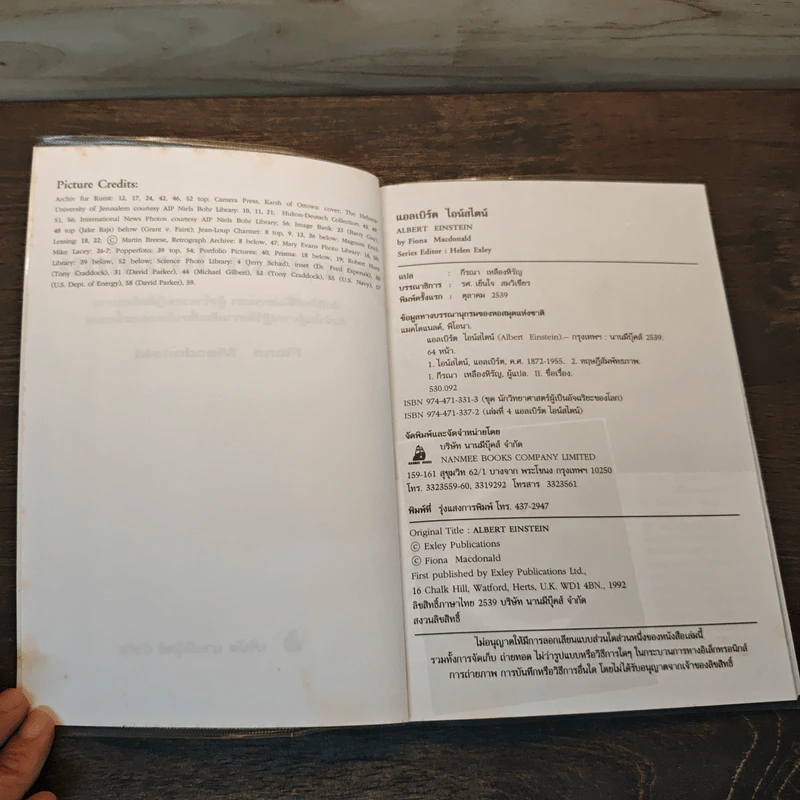 Picture Credits:
Archiv fur Kunst: 12, 17, 24, 42, 46, 52 top; Camera Press, Karsh of Ottowa: cover; The Hebrew
University of Jerusalem courtesy AIP Niels Bohr Library: 10, 11, 21; Hulton-Deutsch Collection:
51, 56; International News Photos courtesy AIP Niels Bohr Library; 56; Image Bank: 23 (Barry
48 top (Jake Raja) below (Grant v. Faint); Jean-Loup Charmet: 8 top, 9, 13, 26 below; Magnum Erich
Lessing: 18, 22; © Martin Breese, Retrograph Archive: 8 below, 47; Mary Evans Photo Library:
Mike Lacey: 26-7; Popperfoto: 39 top, 54; Portfolio Pictures: 40; Prisma: 18 below, 19; Robert Hunt
Library: 39 below, 52 below; Science Photo Library: 4 (Jerry Schad), inset (Dr. Fred Espenak),
(Tony Craddock), 31 (David Parker), 44 (Michael Gilbert), 53 (Tony Craddock), 55 (U.S. Navy), 57
(U.S. Dept. of Energy), 58 (David Parker), 59.
แอลเบิร์ต ไอน์สไตน์
ALBERT EINSTEIN
by Fiona Macdonald
Series Editor : Helen Exley
แปล : กีรณา เหลืองหิรัญ
บรรณาธิการ : รศ. เย็นใจ สมวิเชียร
พิมพ์ครั้งแรก : ตุลาคม 2539
ข้อมูลทางบรรณานุกรมของหอสมุดแห่งชาติ
แมคโดแนลด์, ฟิโอนา.
แอลเบิร์ต ไอน์สไตน์ (Albert Einstein).-- กรุงเทพฯ : นานมีบุ๊คส์ 2539.
64 หน้า.
1. ไอน์สไตน์, แอลเบิร์ต, ค.ศ. 1872-1955. 2. ทฤษฎีสัมพัทธภาพ.
I. กีรณา เหลืองหิรัญ, ผู้แปล. II. ชื่อเรื่อง.
530.092
ISBN 974-471-331-3 (ชุด นักวิทยาศาสตร์ผู้เป็นอัจฉริยะของโลก)
ISBN 974-471-337-2 (เล่มที่ 4 แอลเบิร์ต ไอน์สไตน์)
จัดพิมพ์และจัดจำหน่ายโดย
บริษัท นานมีบุ๊คส์ จำกัด
NANMEE BOOKS COMPANY LIMITED
NANMEE BOOKS
159-161 สุขุมวิท 62/1 บางจาก พระโขนง กรุงเทพฯ 10250
โทร. 3323559-60, 3319292 โทรสาร 3323561
พิมพ์ที่ รุ่งแสงการพิมพ์ โทร. 437-2947
Original Title : ALBERT EINSTEIN
© Exley Publications
© Fiona Macdonald
First published by Exley Publications Ltd.,
16 Chalk Hill, Watford, Herts, U.K. WD1 4BN., 1992
ลิขสิทธิ์ภาษาไทย 2539 บริษัท นานมีบุ๊คส์ จำกัด
สงวนลิขสิทธิ์
ไม่อนุญาตให้มีการลอกเลียนแบบส่วนใดส่วนหนึ่งของหนังสือเล่มนี้
รวมทั้งการจัดเก็บ ถ่ายทอด ไม่ว่ารูปแบบหรือวิธีการใดๆ ในกระบวนการทางอิเล็กทรอนิกส์
การถ่ายภาพ การบันทึกหรือวิธีการอื่นใด โดยไม่ได้รับอนุญาตจากเจ้าของลิขสิทธิ์